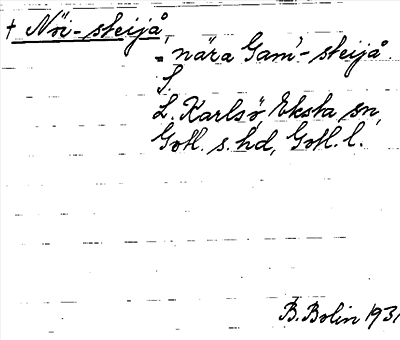 + Nöi-steijå,
nära Gam'-steijå.
S.
L. Karlsö, Eksta sn,
Gotl. s. hd, Gotl. l.
B. Bolin 1931